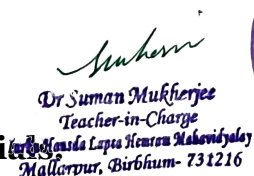 Dr Suman Mukherjee
Teacher-in-Charge
Hansda Lapsa Hemram Mahavidyalay
Mallarpur, Birbhum- 731216